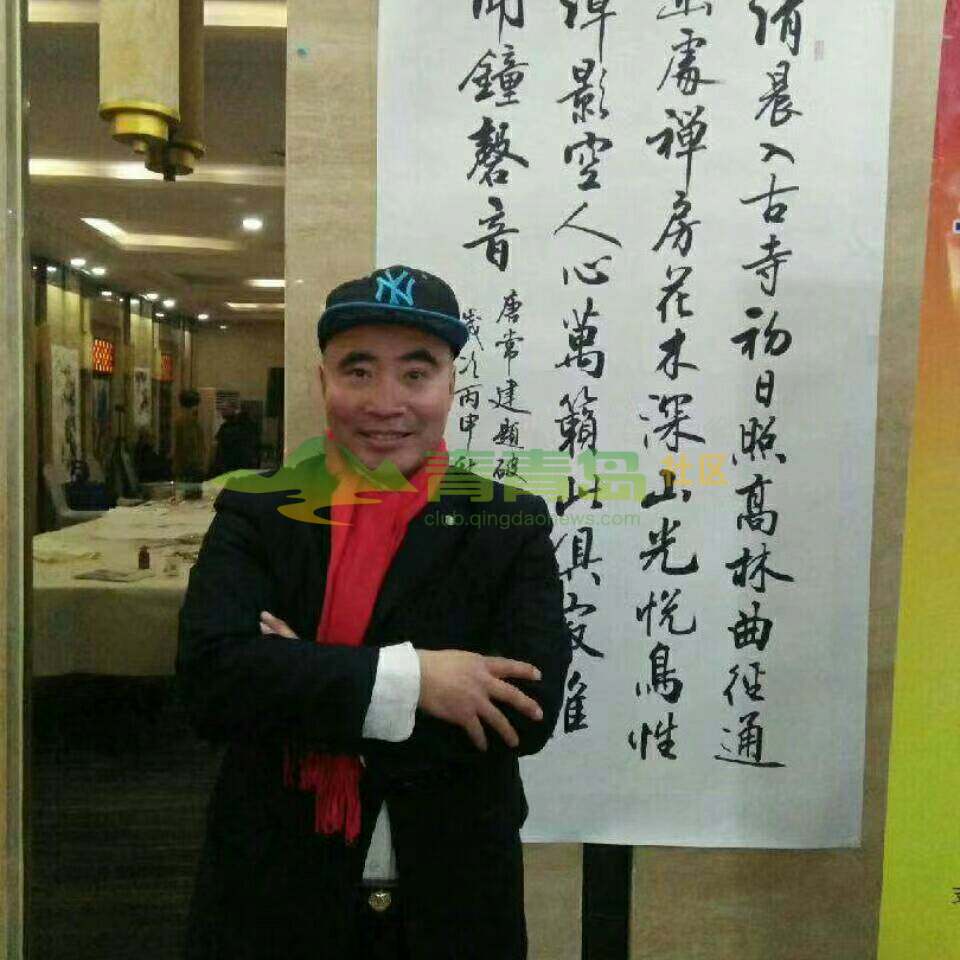 清晨入古寺初日照高林曲径通
幽處禅房花木深山光悦鳥性
潭影空人心萬籟此俱寂惟
聞鐘磬音
唐常建題破
歲次丙申
NY
青青岛社区
club.qingdaonews.com